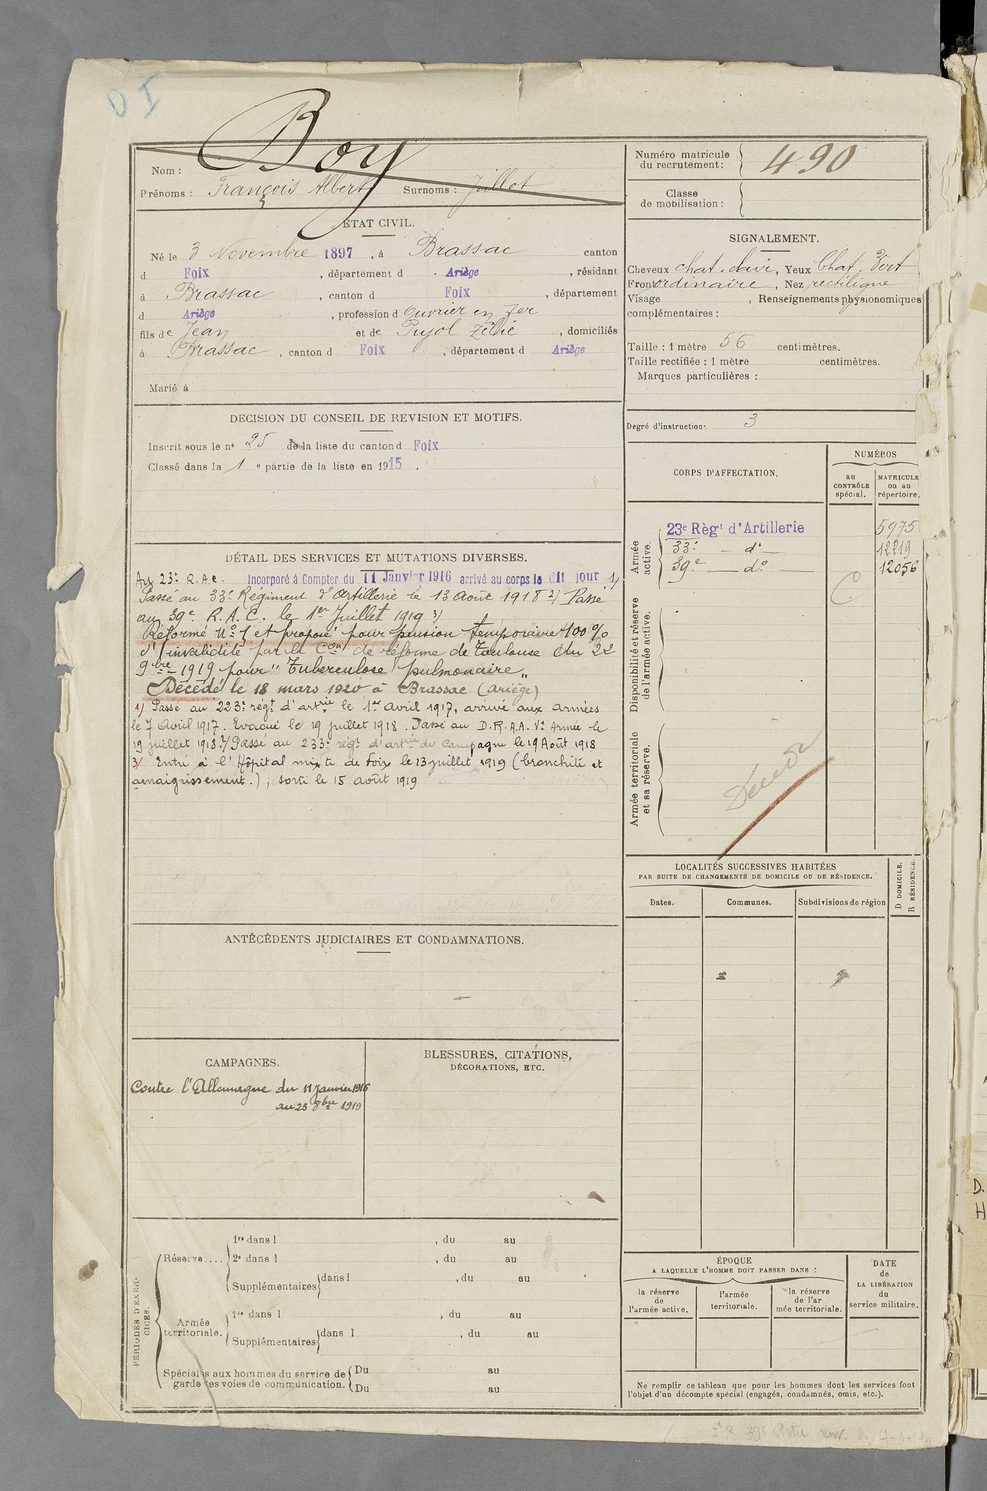 D I
Boy
Nom :
Prénoms : François Albert Surnoms : Jillot
ÉTAT CIVIL.
Né le 3 Novembre 1897, à Brassac canton
d Foix, département d Ariège, résidant
à Brassac, canton d Foix, département
d Ariège, profession d ouvrier en fer
fils de Jean et de Pujol Zélie, domiciliés
à Brassac, canton d Foix, département d Ariège
Marié à
DECISION DU CONSEIL DE REVISION ET MOTIFS.
Inscrit sous le n° 25 de la liste du canton d Foix
Classé dans la 1e partie de la liste en 1915.
DÉTAIL DES SERVICES ET MUTATIONS DIVERSES.
Au 23e R.A.C. Incorporé à Compter du 11 Janvier 1916 arrivé au corps le dit jour 1/
Passé au 33e Régiment d'Artillerie le 13 Août 1918 2/ Passé
au 39e R.A.C. le 1er Juillet 1919 3/
Réformé N° 1 et proposé pour pension temporaire 100 %
d'invalidité par la Con de réforme de Toulouse du 22
9bre 1919 pour "Tuberculose pulmonaire"
Décédé le 18 mars 1920 à Brassac (Ariège)
1) Passé au 223e régt d'artrie le 1er avril 1917, arrivé aux armées
le 7 Avril 1917. Evacué le 19 juillet 1918. Passé au D.R.A.A. Ve Armée le
19 juillet 1918. 2/ Passé au 233e régt d'artrie de Campagne le 19 Août 1918
3/ Entré à l'Hôpital mixte de Foix le 13 juillet 1919 (bronchite et
amaigrissement.) ; sorti le 15 août 1919
ANTÉCÉDENTS JUDICIAIRES ET CONDAMNATIONS.
CAMPAGNES.
Contre l'Allemagne du 11 Janvier 1916
au 23 8bre 1919
BLESSURES, CITATIONS,
DÉCORATIONS, ETC.
PÉRIODES D'EXERCICES.
Réserve....
1re dans l , du au
2e dans l , du au
Supplémentaires dans l , du au
Armée territoriale.
1re dans l , du au
Supplémentaires dans l , du au
Spéciales aux hommes du service de
garde des voies de communication.
Du au
Du au
Numéro matricule
du recrutement : 490
Classe
de mobilisation :
SIGNALEMENT.
Cheveux chat. clair, Yeux Chat. Vert
Front ordinaire, Nez rectiligne
Visage , Renseignements physionomiques
complémentaires :
Taille : 1 mètre 56 centimètres.
Taille rectifiée : 1 mètre centimètres.
Marques particulières :
Degré d'instruction : 3
CORPS D'AFFECTATION.
NUMÉROS
AU CONTRÔLE spécial.
MATRICULE ou au répertoire.
Armée active.
23e Régt d'Artillerie 5975
33e — do — 12219
39e — do — 12056
C
Disponibilité et réserve de l'armée active.
Armée territoriale et sa réserve.
Décédé
LOCALITÉS SUCCESSIVES HABITÉES
PAR SUITE DE CHANGEMENTS DE DOMICILE OU DE RÉSIDENCE.
D DOMICILE.
R RÉSIDENCE
Dates.
Communes.
Subdivisions de région
ÉPOQUE
A LAQUELLE L'HOMME DOIT PASSER DANS :
la réserve de l'armée active.
l'armée territoriale.
la réserve de l'armée territoriale.
DATE de LA LIBÉRATION du service militaire.
Ne remplir ce tableau que pour les hommes dont les services font
l'objet d'un décompte spécial (engagés, condamnés, omis, etc.).
D.
H